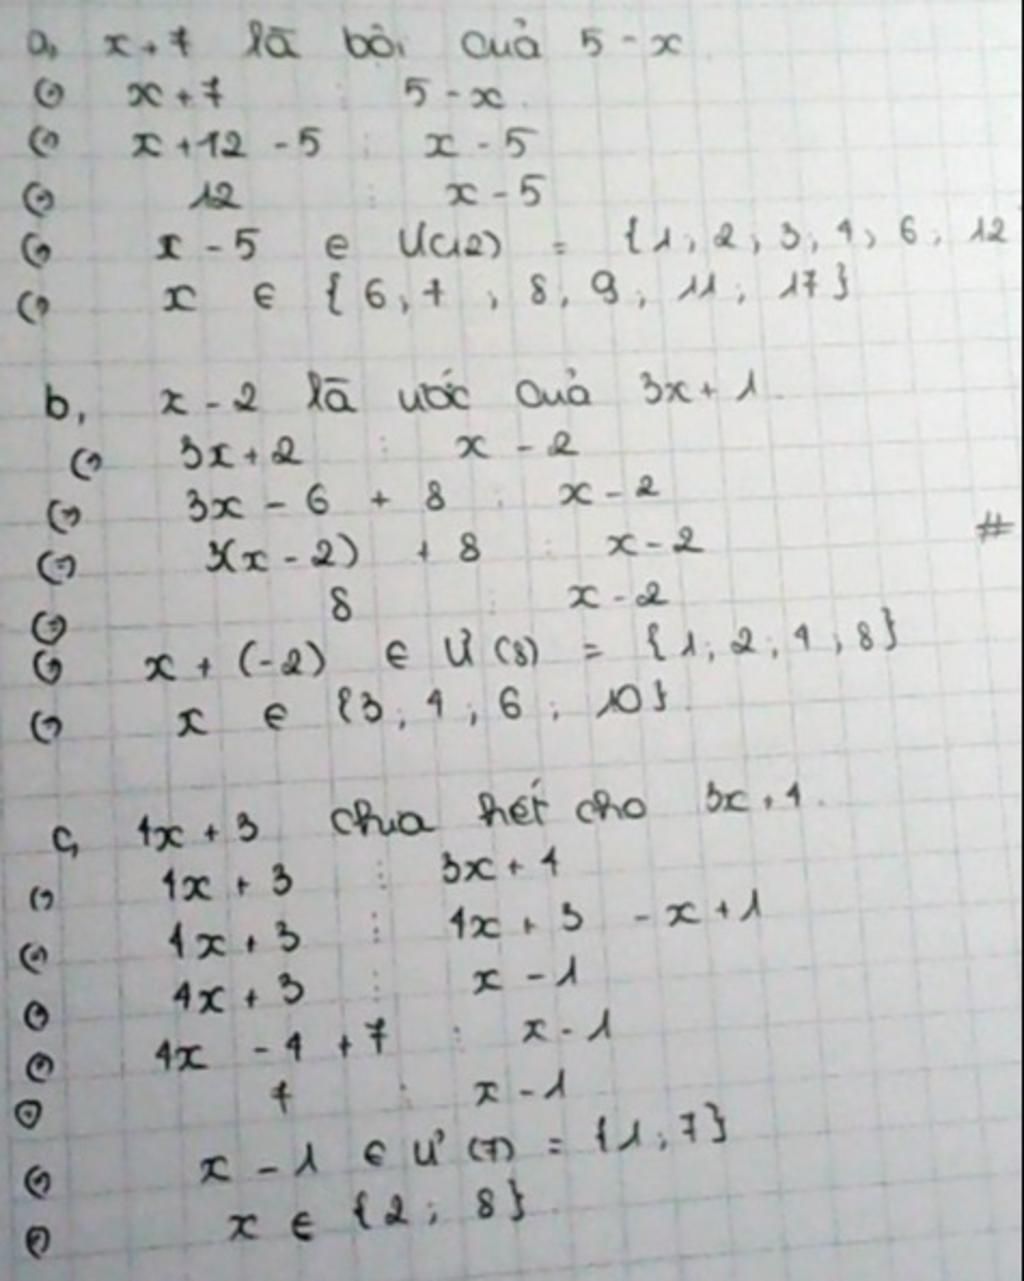 a, x + 7 là bội của 5 - x
⇔ x + 7 ⋮ 5 - x
⇔ x + 12 - 5 ⋮ x - 5
⇔ 12 ⋮ x - 5
⇔ x - 5 ∈ Ư(12) = {1; 2; 3; 4; 6; 12
⇔ x ∈ {6; 7; 8; 9; 11; 17}
b, x - 2 là ước của 3x + 1
⇔ 3x + 2 ⋮ x - 2
⇔ 3x - 6 + 8 ⋮ x - 2
⇔ 3(x - 2) + 8 ⋮ x - 2 #
⇔ 8 ⋮ x - 2
⇔ x + (-2) ∈ Ư(8) = {1; 2; 4; 8}
⇔ x ∈ {3; 4; 6; 10}
c, 4x + 3 chia hết cho 3x + 4
⇔ 4x + 3 ⋮ 3x + 4
⇔ 4x + 3 ⋮ 4x + 3 - x + 1
⇔ 4x + 3 ⋮ x - 1
⇔ 4x - 4 + 7 ⋮ x - 1
⇔ 7 ⋮ x - 1
⇔ x - 1 ∈ Ư(7) = {1; 7}
⇔ x ∈ {2; 8}